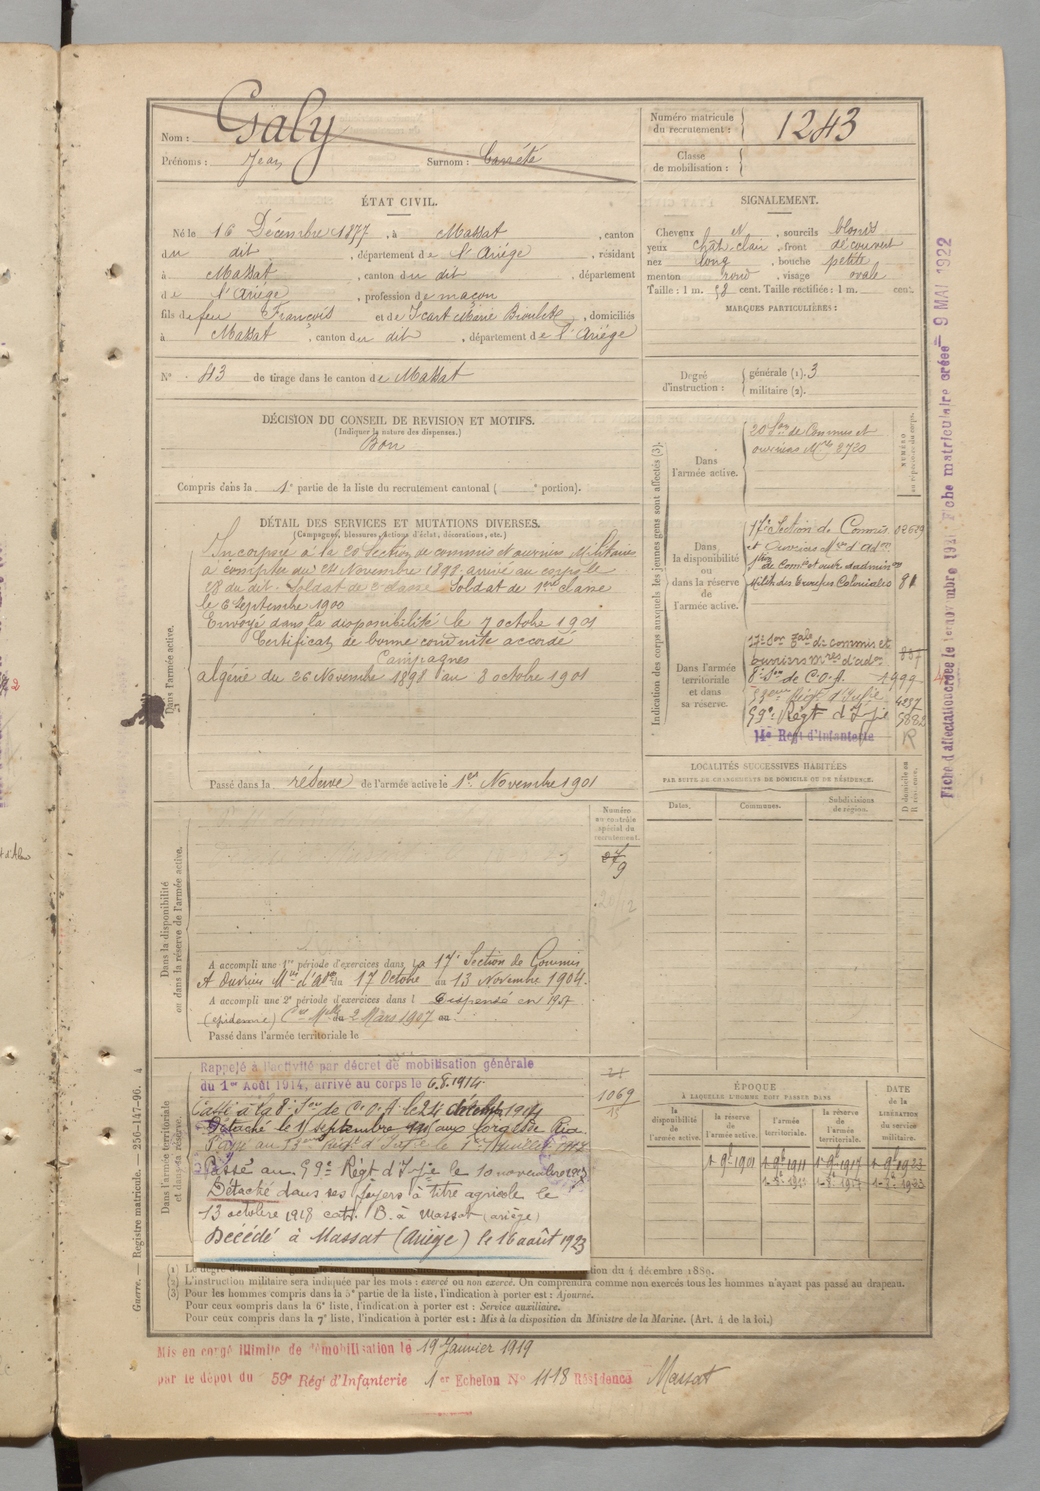 Nom : Galy
Prénoms : Jean Surnom : Carrété
Numéro matricule du recrutement : 1243
Classe de mobilisation :
ÉTAT CIVIL.
Né le 16 Décembre 1877, à Massat, canton
du dit, département de l'Ariége, résidant
à Massat, canton du dit, département
de l'Ariége, profession de maçon
fils de feu François et de Icart Marie, domiciliés
à Massat, canton du dit, département de l'Ariége
N° 43 de tirage dans le canton de Massat
SIGNALEMENT.
Cheveux et, sourcils blonds
yeux chât. clair, front découvert
nez long, bouche petite
menton rond, visage ovale
Taille : 1 m. 58 cent. Taille rectifiée : 1 m. cent.
MARQUES PARTICULIÈRES :
Degré d'instruction : générale (1). 3
militaire (2).
DÉCISION DU CONSEIL DE REVISION ET MOTIFS.
(Indiquer la nature des dispenses.)
Bon
Compris dans la 1e partie de la liste du recrutement cantonal ( e portion).
DÉTAIL DES SERVICES ET MUTATIONS DIVERSES.
(Campagnes, blessures, actions d'éclat, décorations, etc.)
Dans l'armée active.
Incorporé à la 20e Section de commis et ouvriers Militaires
à compter du 24 Novembre 1898, arrivé au corps le
28 du dit. Soldat de 2e classe. Soldat de 1ere classe
le 6 Septembre 1900
Envoyé dans la disponibilité le 7 octobre 1901
Certificat de bonne conduite accordé
Campagnes
algérie du 26 Novembre 1898 au 8 octobre 1901
Passé dans la réserve de l'armée active le 1er Novembre 1901
Indication des corps auxquels les jeunes gens sont affectés (3).
Dans l'armée active.
20e Son de Commis et
ouvriers Mres 3720
Dans la disponibilité ou dans la réserve de l'armée active.
17e Section de Commis
et Ouvriers Mres d'adon
Milit. des Troupes Coloniales 81
Dans l'armée territoriale et dans sa réserve.
17e Son Tale de commis et
ouvriers mres d'adon 887
8e Son de C.O.A. 1999
59e Régt d'Infie
14e Régt d'Infanterie R
LOCALITÉS SUCCESSIVES HABITÉES
PAR SUITE DE CHANGEMENTS DE DOMICILE OU DE RÉSIDENCE.
Dates. Communes. Subdivisions de région. Domicile ou Résidence.
Dans la disponibilité ou dans la réserve de l'armée active.
Numéro au contrôle spécial du recrutement.
9
A accompli une 1re période d'exercices dans la 17e Section de Commis
et Ouvriers Mres d'adon du 17 Octobre au 13 Novembre 1904.
A accompli une 2e période d'exercices dans l Dispensé en 1907
(épidémie) du 2 Mars 1907 au
Passé dans l'armée territoriale le
Dans l'armée territoriale et dans sa réserve.
Rappelé à l'activité par décret de mobilisation générale
du 1er Août 1914, arrivé au corps le 6.8.1914.
Passé à la 8e Son de C.O.A le 24 décembre 1914
Détaché le 11 septembre aux forges de
Passé au 59e Régt d'Infie le 10 novembre 1917
Détaché dans ses foyers à titre agricole le
13 octobre 1918 cat. B. à Massat (ariège)
Décédé à Massat (Ariège) le 16 août 1923
1069
ÉPOQUE
À LAQUELLE L'HOMME DOIT PASSER DANS
la disponibilité de l'armée active.
la réserve de l'armée active.
l'armée territoriale.
la réserve de l'armée territoriale.
DATE de la LIBÉRATION du service militaire.
1-9-1901 1-9-1911 1-9-1917 1-9-1923
(2) L'instruction militaire sera indiquée par les mots : exercé ou non exercé. On comprendra comme non exercés tous les hommes n'ayant pas passé au drapeau.
(3) Pour les hommes compris dans la 5e partie de la liste, l'indication à porter est : Ajourné.
Pour ceux compris dans la 6e liste, l'indication à porter est : Service auxiliaire.
Pour ceux compris dans la 7e liste, l'indication à porter est : Mis à la disposition du Ministre de la Marine. (Art. 4 de la loi.)
Mis en congé illimité de démobilisation le 19 Janvier 1919
par le dépôt du 59e Régt d'Infanterie 1er Echelon N° 1118 Résidence Massat
Guerre. — Registre matricule. — 256-147-96. 4
Fiche matriculaire créée 9 MAI 1922